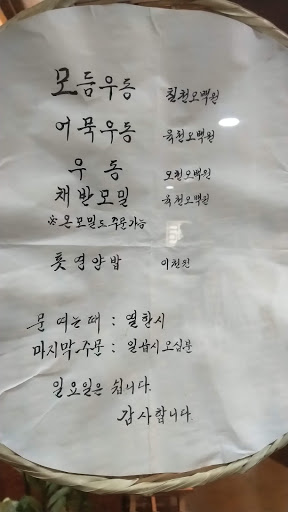 모듬우동 칠천오백원
어묵우동 육천오백원
우동 오천오백원
채반모밀 육천오백원
※온모밀도 주문가능
톳영양밥 이천원
문 여는 때 : 열한시
마지막 주문 : 일곱시 오십분
일요일은 쉽니다.
감사합니다